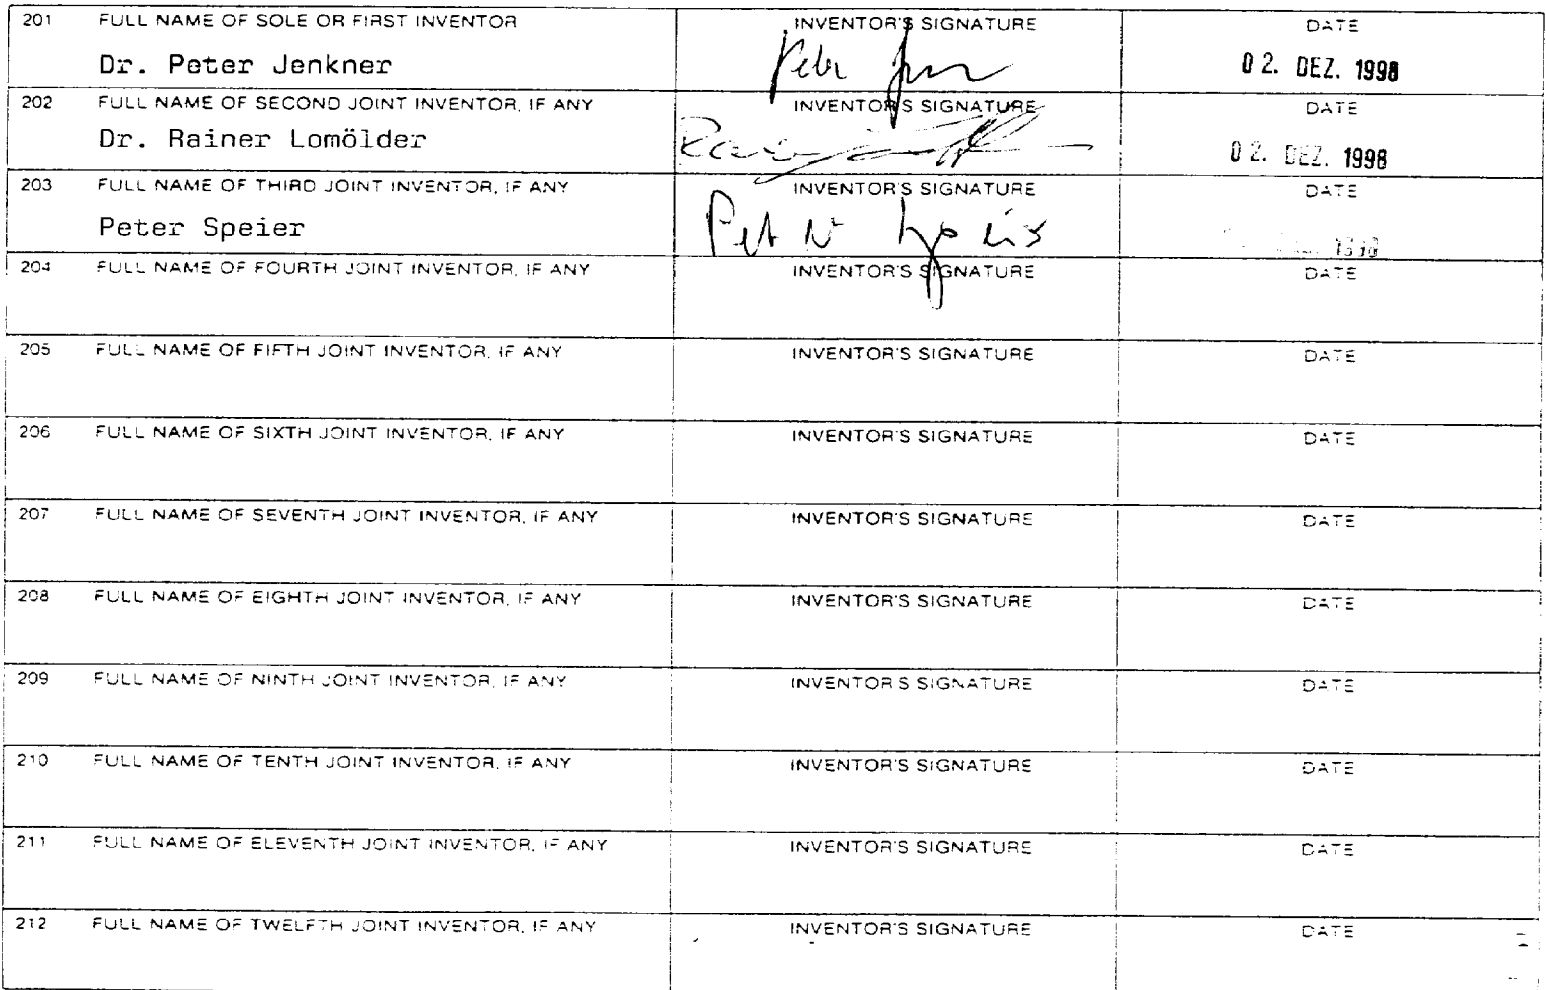 201 FULL NAME OF SOLE OR FIRST INVENTOR INVENTOR'S SIGNATURE DATE
Dr. Peter Jenkner Peter 02. DEZ. 1998
202 FULL NAME OF SECOND JOINT INVENTOR, IF ANY INVENTOR'S SIGNATURE DATE
Dr. Rainer Lomölder 02. DEZ. 1998
203 FULL NAME OF THIRD JOINT INVENTOR, IF ANY INVENTOR'S SIGNATURE DATE
Peter Speier
204 FULL NAME OF FOURTH JOINT INVENTOR, IF ANY INVENTOR'S SIGNATURE DATE
205 FULL NAME OF FIFTH JOINT INVENTOR, IF ANY INVENTOR'S SIGNATURE DATE
206 FULL NAME OF SIXTH JOINT INVENTOR, IF ANY INVENTOR'S SIGNATURE DATE
207 FULL NAME OF SEVENTH JOINT INVENTOR, IF ANY INVENTOR'S SIGNATURE DATE
208 FULL NAME OF EIGHTH JOINT INVENTOR, IF ANY INVENTOR'S SIGNATURE DATE
209 FULL NAME OF NINTH JOINT INVENTOR, IF ANY INVENTOR'S SIGNATURE DATE
210 FULL NAME OF TENTH JOINT INVENTOR, IF ANY INVENTOR'S SIGNATURE DATE
211 FULL NAME OF ELEVENTH JOINT INVENTOR, IF ANY INVENTOR'S SIGNATURE DATE
212 FULL NAME OF TWELFTH JOINT INVENTOR, IF ANY INVENTOR'S SIGNATURE DATE